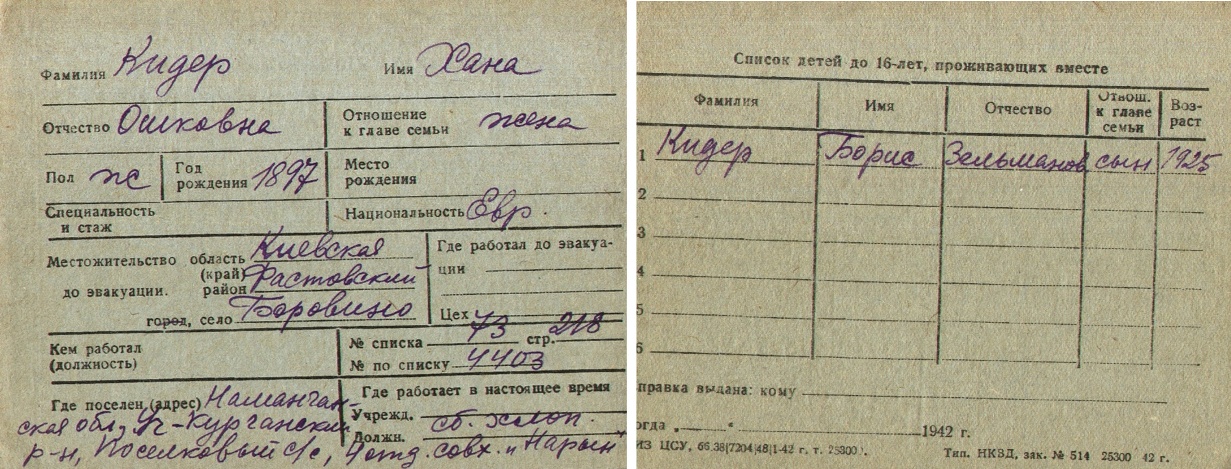 Фамилия Кидер Имя Хана
Отчество Ошковна Отношение к главе семьи жена
Пол ж Год рождения 1897 Место рождения
Специальность и стаж Национальность Евр.
Местожительство область Киевская
(край)
до эвакуации. район Фастовский
город, село Боровицо
Где работал до эвакуа-
ции
Цех
Кем работал
(должность)
№ списка 73 стр. 218
№ по списку 4403
Где поселен (адрес) Наманган-
ская обл, Уч-Курганский
р-н, Поселковый с/с, 4 отд. совх. "Нарын"
Где работает в настоящее время
Учрежд. сб. хлоп.
Должн.
Список детей до 16-лет, проживающих вместе
Фамилия Имя Отчество Отнош. к главе семьи Воз-раст
1 Кидер Борис Зельманов сын 1925
2
3
4
5
6
правка выдана: кому
огда „ “ 1942 г.
ИЗ ЦСУ, 66.38|7204|48|1-42 г. т. 25300. Тип. НКВД, зак. № 514 25300 42 г.